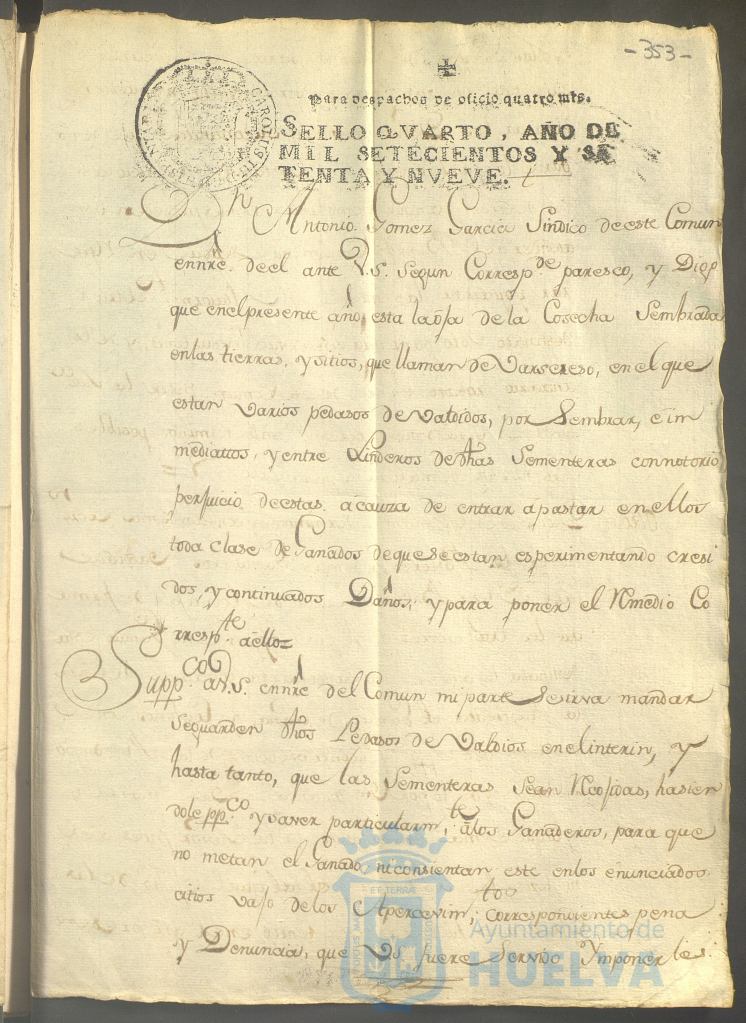 -353-
CAROLUS III
Para despachos de oficio quatro mrs.
SELLO QVARTO, AÑO DE
MIL SETECIENTOS Y SE
TENTA Y NVEVE.
Dn Antonio Gomez Garcia Sindico de este Comun
ennre. de el ante V.S. segun Correspde. paresco, y Digo
que en el presente año esta la oja de la Cosecha Sembrada
en las tierras, y sitios, que llaman de Varsereso, en el que
estan varios pedasos de valdidos, por Sembrar, è im
mediattos, y entre Linderos de dhas Sementeras con notorio
perjuicio de estas à cauza de entrar à pastar en ellos
toda clase de Ganados de que se estan esperimentando cresi
dos, y continuados Daños; y para poner el Rmedio Co
rrespte. à ello=
Suppco. a V.S. en nre. del Comun mi parte se sirva mandar
se guarden dhos Pedasos de Valdios en el interin, y
hasta tanto, que las Sementeras sean Rcojidas, hasien
dole ppco. y saver particularmte. à los Ganaderos, para que
no metan el Ganado, ni consientan este en los enunciados
citios vajo de los Apercevimtos. correspondientes pena
y Denuncia, que VS fuere servido Ymponerles.
ET TERRA
Ayuntamiento de
HUELVA